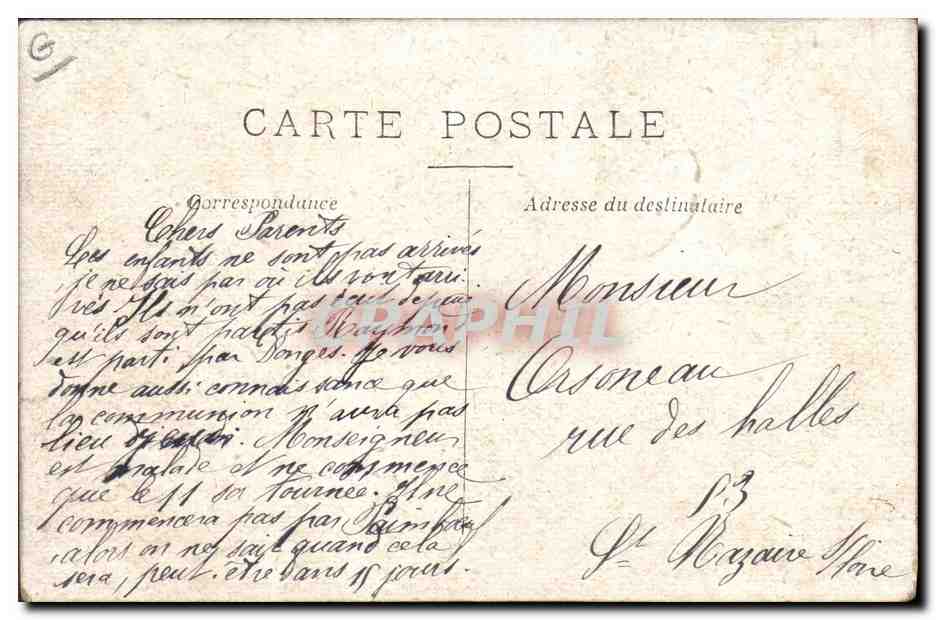 G
CARTE POSTALE
Correspondance
Adresse du destinataire
Chers Parents
Les enfants ne sont pas arrivés
je ne sais par où ils vont arri
vés Ils n'ont pas écrit depuis
qu'ils sont partis Raymond
est parti par Donges. Je vous
donne aussi connaissance que
la communion n'aura pas
lieu jeudi. Monseigneur
est malade et ne commence
que le 11 sa tournée. Il ne
commencera pas par Paimboeuf
alors on ne sait quand cela
sera, peut-être dans 15 jours.
Monsieur
Orsoneau
rue des halles
53
St Nazaire s/Loire
CPAPHIL